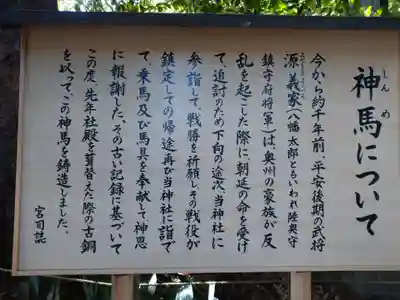 神馬について
しんめ
今から約千年前、平安後期の武将
源 義家(八幡太郎ともいわれ陸奥守
鎮守府将軍)は、奥州の豪族が反
乱を起こした際に、朝廷の命を受け
て追討のため下向の途次、当神社に
参詣して、戦勝を祈願しその戦役が
鎮定しての帰途再び当神社に詣で
て、乗馬及び馬具を奉献して神恩
に報謝した。その古い記録に基づいて
この度、先年社殿を葺替えた際の古銅
を以って、この神馬を鋳造しました。
宮司誌